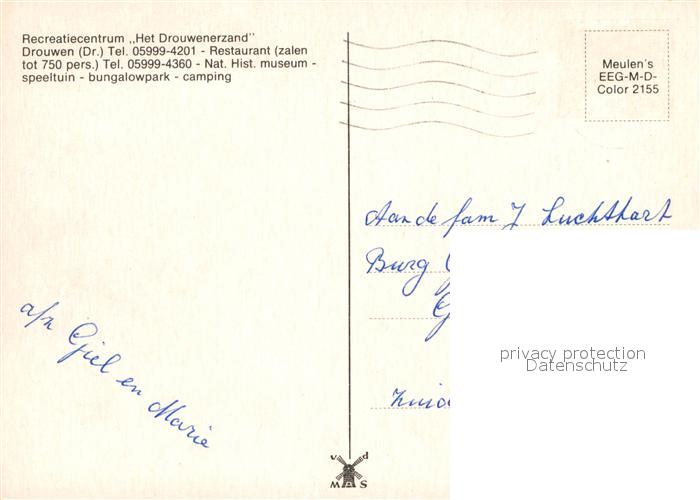 Recreatiecentrum ,,Het Drouwenerzand''
Drouwen (Dr.) Tel. 05999-4201 - Restaurant (zalen
tot 750 pers.) Tel. 05999-4360 - Nat. Hist. museum -
speeltuin - bungalowpark - camping
Meulen's
EEG-M-D-
Color 2155
Aan de fam J Luchthart
Burg
privacy protection
Datenschutz
Giel en Marie
v d
M S